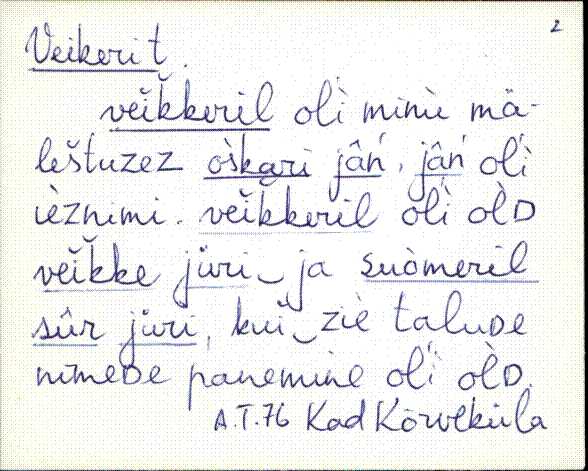 2
Veikerit.
veĭkkeril olì minùe mä-
leštuzez òškari jâń, jâń olì
ièznimi. veĭkkeril olì òlD
veĭkke jüri‿ja suòmeril
sûr jüri, kui‿ziè taluDe
nìmeDe panemine olì òlD.
A.T.76 Kad Kõrveküla